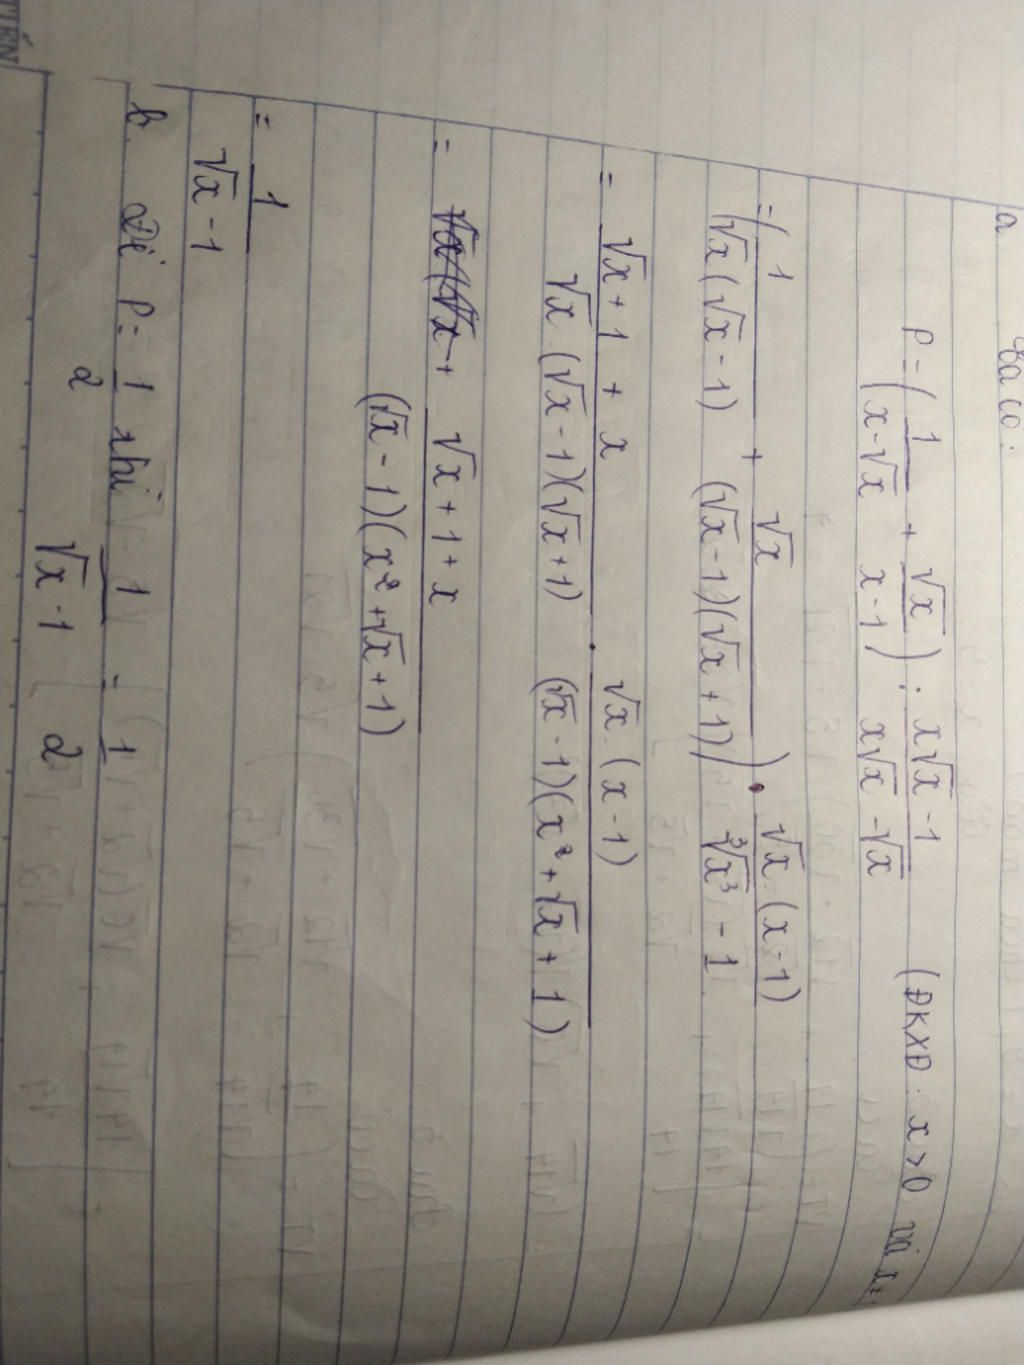 TIẾN
a Ta có:
P = ( 1/(x-√x) + √x/(x-1) ) : (x√x - 1)/(x√x - √x) (ĐKXĐ: x > 0 và
= ( 1/(√x(√x - 1)) + √x/((√x - 1)(√x + 1)) ) . (√x.(x - 1))/(³√x³ - 1)
= (√x + 1 + x)/(√x.(√x - 1)(√x + 1)) . (√x.(x - 1))/((√x - 1)(x² + √x + 1))
= (√x + 1 + x)/((√x - 1)(x² + √x + 1))
= 1/(√x - 1)
b. Để P = 1/2 thì 1/(√x - 1) = 1/2